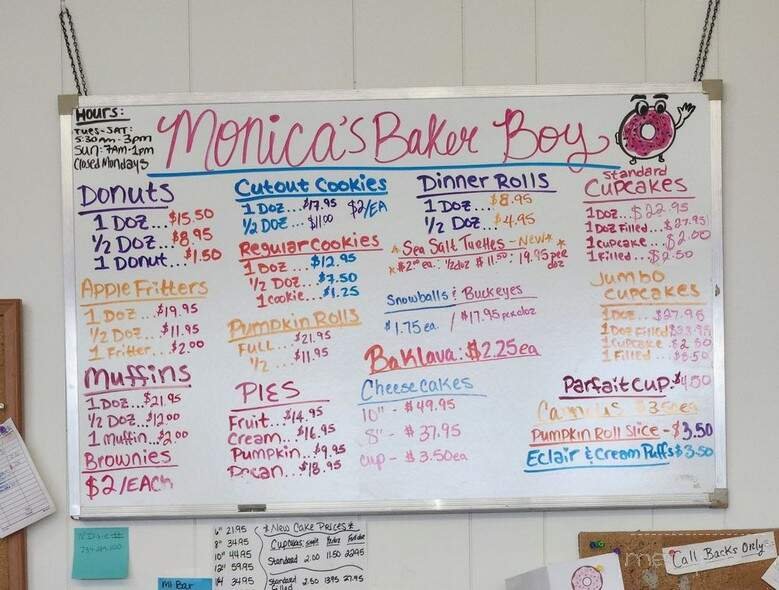 Hours:
Tues-Sat:
5:30am-3pm
Sun: 7am-1pm
Closed Mondays
Monica's Baker Boy
Donuts
1 Doz...$15.50
1/2 Doz...$8.95
1 Donut...$1.50
Apple Fritters
1 Doz...$19.95
1/2 Doz...$11.95
1 Fritter...$2.00
Muffins
1 Doz...$21.95
1/2 Doz...$12.00
1 Muffin...$2.00
Brownies
$2/Each
Cutout Cookies
1 Doz...$17.95
1/2 Doz...$11.00
$2/EA
Regular Cookies
1 Doz...$12.95
1/2 Doz...$7.50
1 Cookie...$1.25
Pumpkin Rolls
Full...$21.95
1/2...$11.95
Pies
Fruit...$14.95
Cream...$16.95
Pumpkin...$9.95
Pecan...$18.95
Dinner Rolls
1 Doz...$8.95
1/2 Doz...$4.95
Sea Salt Turtles - New
$2.00 ea: 1/2 doz $11.50: 19.95 per doz
Snowballs & Buckeyes
$1.75 ea. / $17.95 per doz
Baklava: $2.25ea
Cheesecakes
10" - $49.95
8" - $37.95
cup - $3.50ea
Standard
Cupcakes
1 Doz...$22.95
1 Doz Filled...$27.95
1 Cupcake...$2.00
1 Filled...$2.50
Jumbo
Cupcakes
1 Doz...$27.95
1 Doz Filled
1 Cupcake $2.50
1 Filled
Parfait Cup $4.50
$3.50ea
Pumpkin Roll Slice - $3.50
Eclair & Cream Puffs $3.50
6" 21.95
8" 34.95
10" 44.95
12" 59.95
14" 34.95
*New Cake Prices*
Cupcakes:
Standard 2.00 11.50 22.95
Standard filled 2.50 13.95 27.95
MI Bar
Call Backs Only